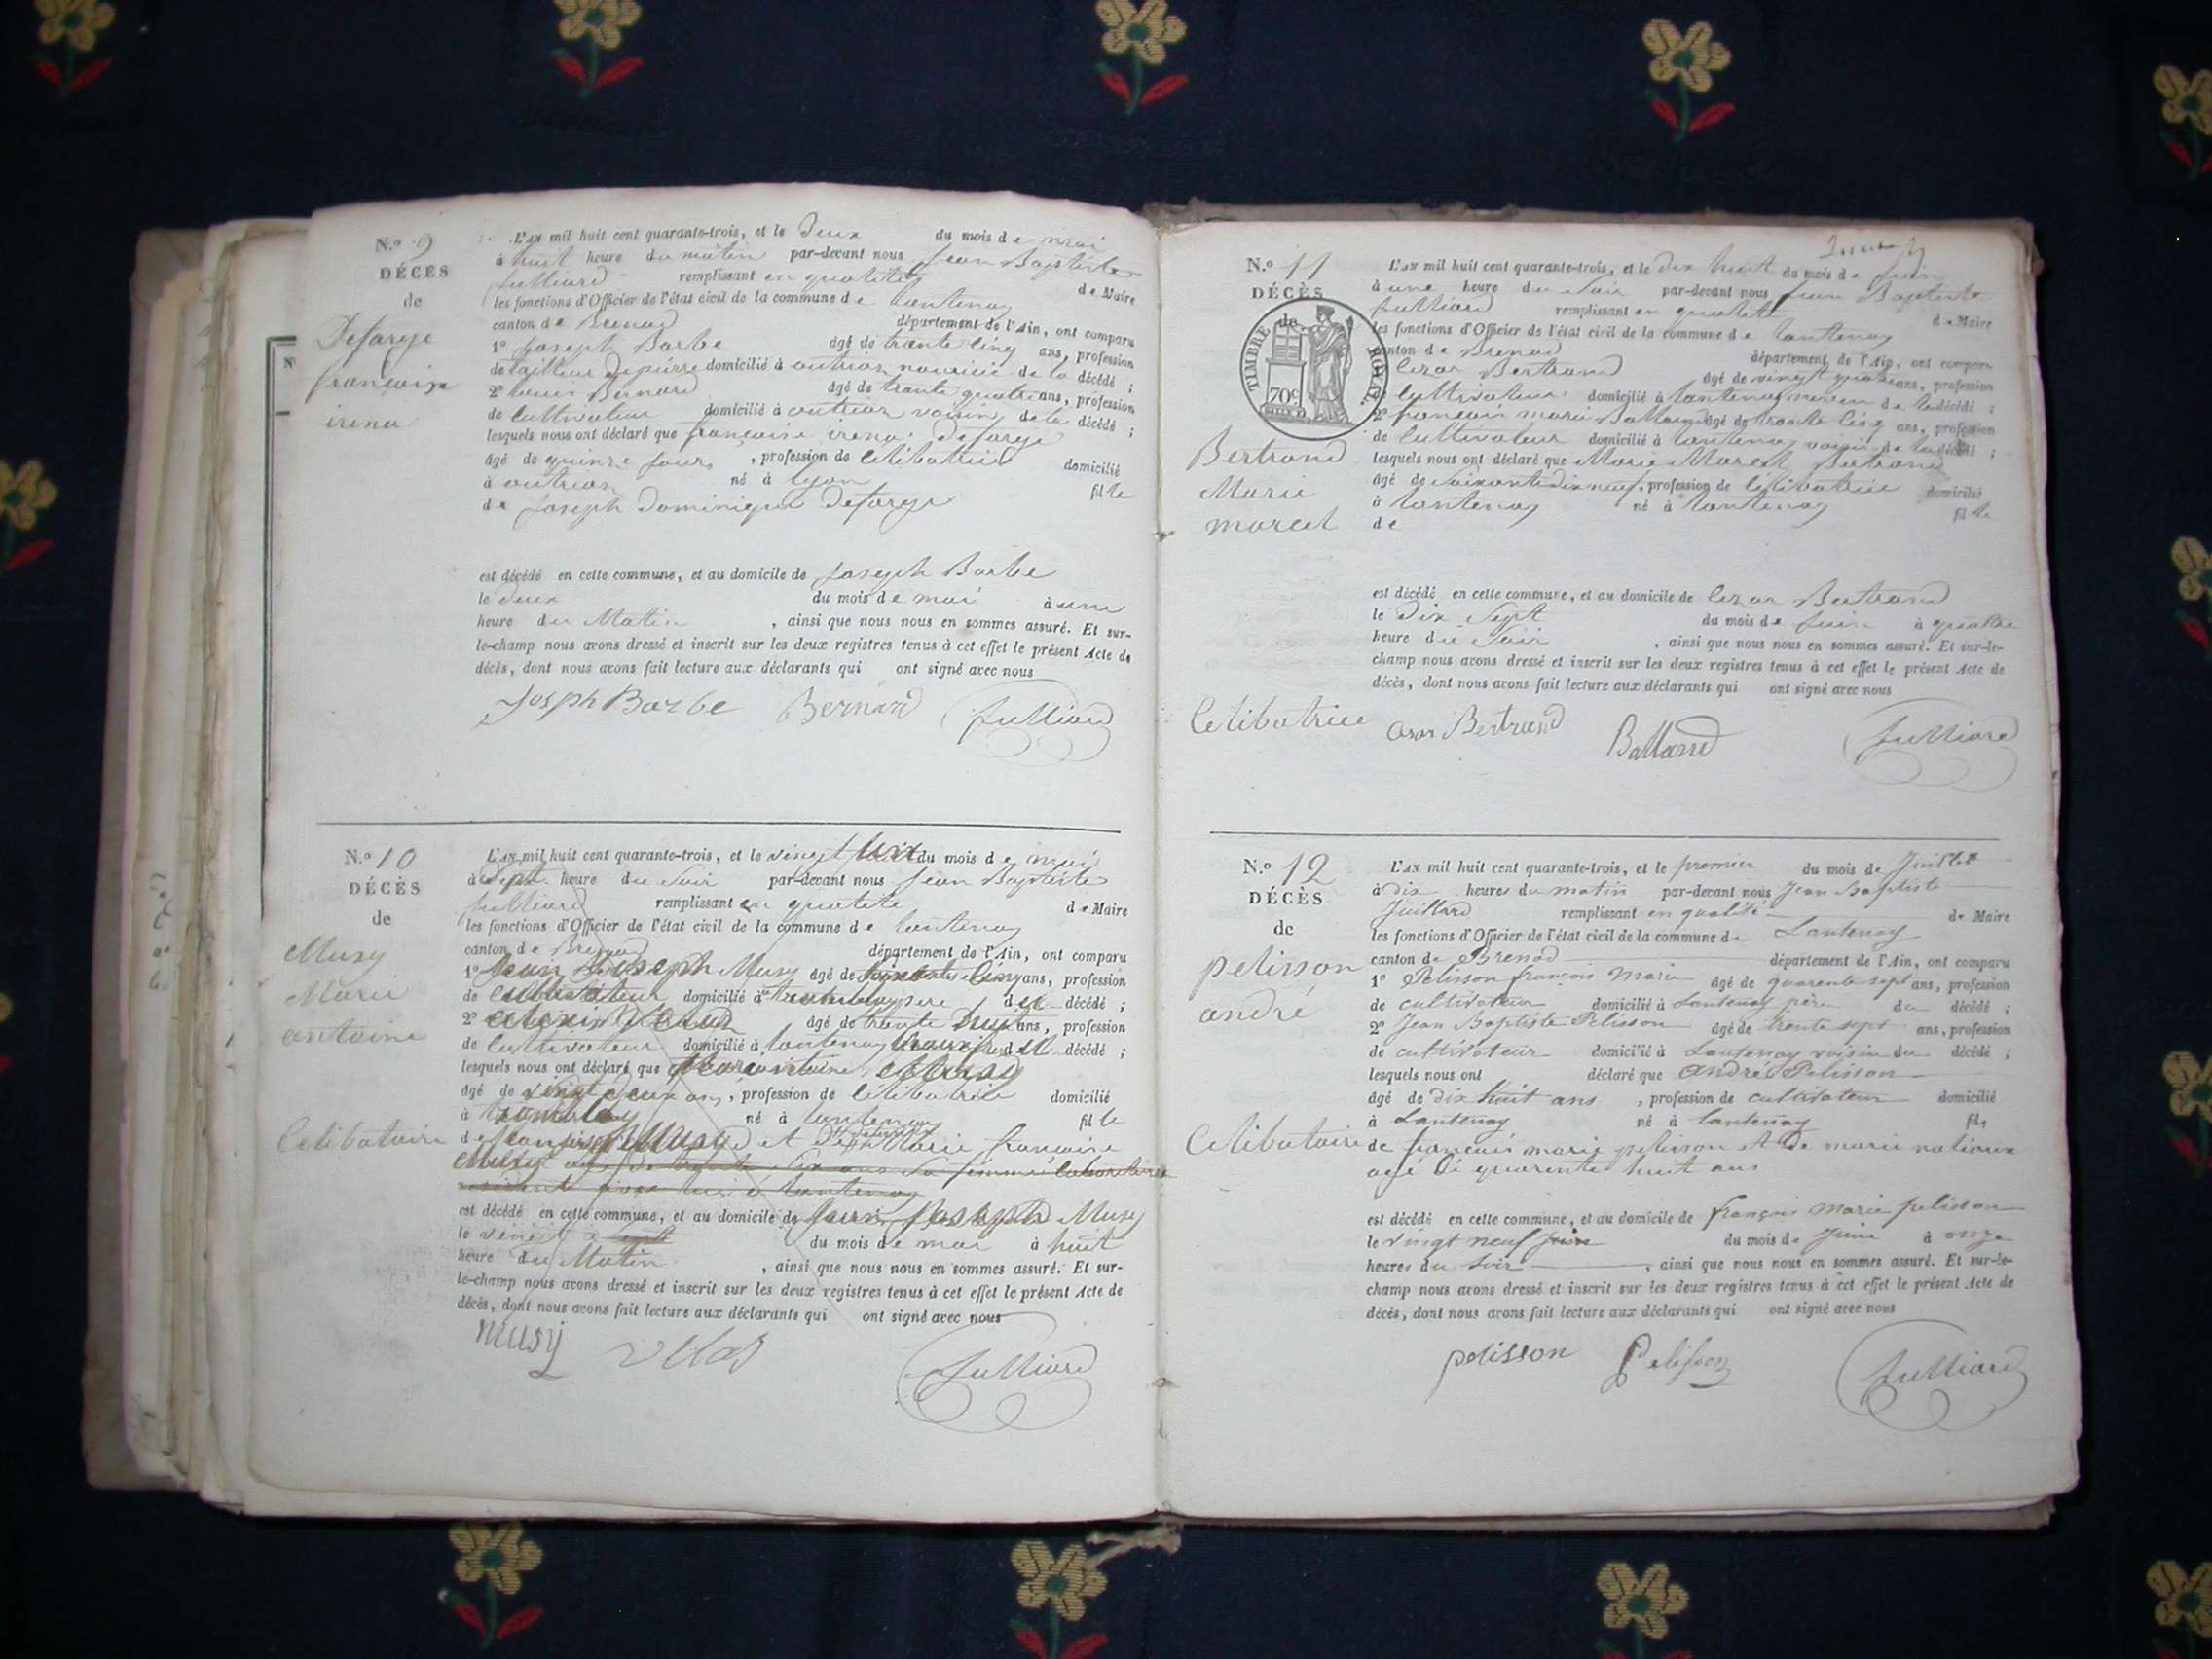 N.º 9
DÉCÈS
de
Defarge
françoise
irena
L'AN mil huit cent quarante-trois, et le deux du mois de mai
à huit heure du matin par-devant nous Jean Baptiste
Julliard remplissant en qualité de Maire
les fonctions d'Officier de l'état civil de la commune de Lantenay
canton de Brenod département de l'Ain, ont comparu
1º Joseph Barbe âgé de trente cinq ans, profession
de tailleur de pierre domicilié à outriaz de la décédé ;
2º Bernard âgé de trente quatre ans, profession
de cultivateur domicilié à outriaz voisin de la décédé ;
lesquels nous ont déclaré que françoise irena defarge
âgé de quinze jours , profession de celibatrice domicilié
à outriaz né à lyon fille
de Joseph Dominique Defarge
est décédé en cette commune, et au domicile de Joseph Barbe
le deux du mois de mai à une
heure du Matin , ainsi que nous nous en sommes assuré. Et sur-
le-champ nous avons dressé et inscrit sur les deux registres tenus à cet effet le présent Acte de
décès, dont nous avons fait lecture aux déclarants qui ont signé avec nous
Josph Barbe Bernard Julliard
N.º 10
DÉCÈS
de
Musy
Marie
antoine
Celibataire
L'AN mil huit cent quarante-trois, et le vingt du mois de mai
à Sept heure du Soir par-devant nous Jean Baptiste
Julliard remplissant en qualité de Maire
les fonctions d'Officier de l'état civil de la commune de Lantenay
canton de Brenod département de l'Ain, ont comparu
1º Jean Joseph Musy âgé de cinq ans, profession
de cultivateur domicilié à père du décédé ;
2º âgé de trente huit ans, profession
de cultivateur domicilié à lantenay décédé ;
lesquels nous ont déclaré que
âgé de vingt deux ans, profession de celibatrice domicilié
à né à lantenay fille
de Musy et de Marie françoise
est décédé en cette commune, et au domicile de Jean Joseph Musy
le vingt du mois de mai à huit
heure du Matin , ainsi que nous nous en sommes assuré. Et sur-
le-champ nous avons dressé et inscrit sur les deux registres tenus à cet effet le présent Acte de
décès, dont nous avons fait lecture aux déclarants qui ont signé avec nous
musy Julliard
N.º 11
DÉCÈS
de
TIMBRE ROYAL
70c
Bertrand
Marie
marcel
Celibatrice
L'AN mil huit cent quarante-trois, et le dix huit du mois de Juin
à une heure du Soir par-devant nous Jean Baptiste
Julliard remplissant en qualité de Maire
les fonctions d'Officier de l'état civil de la commune de Lantenay
canton de Brenod département de l'Ain, ont comparu
Cezar Bertrand âgé de vingt quatre ans, profession
cultivateur domicilié à lantenay neveu de la décédé ;
2º françois marie Balland âgé de trente cinq ans, profession
de Cultivateur domicilié à Lantenay voisin de la décédé ;
lesquels nous ont déclaré que Marie Marcel Bertrand
âgé de Soixante dix neuf, profession de Celibatrice domicilié
à lantenay né à lantenay fille
de
est décédé en cette commune, et au domicile de Cezar Bertrand
le Dix Sept du mois de Juin à quatre
heure du Soir , ainsi que nous nous en sommes assuré. Et sur-le-
champ nous avons dressé et inscrit sur les deux registres tenus à cet effet le présent Acte de
décès, dont nous avons fait lecture aux déclarants qui ont signé avec nous
Bertrand Balland Julliard
N.º 12
DÉCÈS
de
pelisson
andré
Celibataire
L'AN mil huit cent quarante-trois, et le premier du mois de Juillet
à dix heures du matin par-devant nous Jean Baptiste
Juillard remplissant en qualité de Maire
les fonctions d'Officier de l'état civil de la commune de Lantenay
canton de Brenod département de l'Ain, ont comparu
1º Pelisson françois Marie âgé de quarente sept ans, profession
de cultivateur domicilié à Lantenay père du décédé ;
2º Jean Baptiste Pelisson âgé de trente sept ans, profession
de cultivateur domicilié à Lantenay voisin du décédé ;
lesquels nous ont déclaré que André Pelisson
âgé de dix huit ans , profession de cultivateur domicilié
à Lantenay né à lantenay fils
de françois marie pelisson et de marie
agé de quarente huit ans
est décédé en cette commune, et au domicile de françois Marie pelisson
le vingt neuf juin du mois de Juin à onze
heures du Soir , ainsi que nous nous en sommes assuré. Et sur-le-
champ nous avons dressé et inscrit sur les deux registres tenus à cet effet le présent Acte de
décès, dont nous avons fait lecture aux déclarants qui ont signé avec nous
pelisson Pelisson Julliard